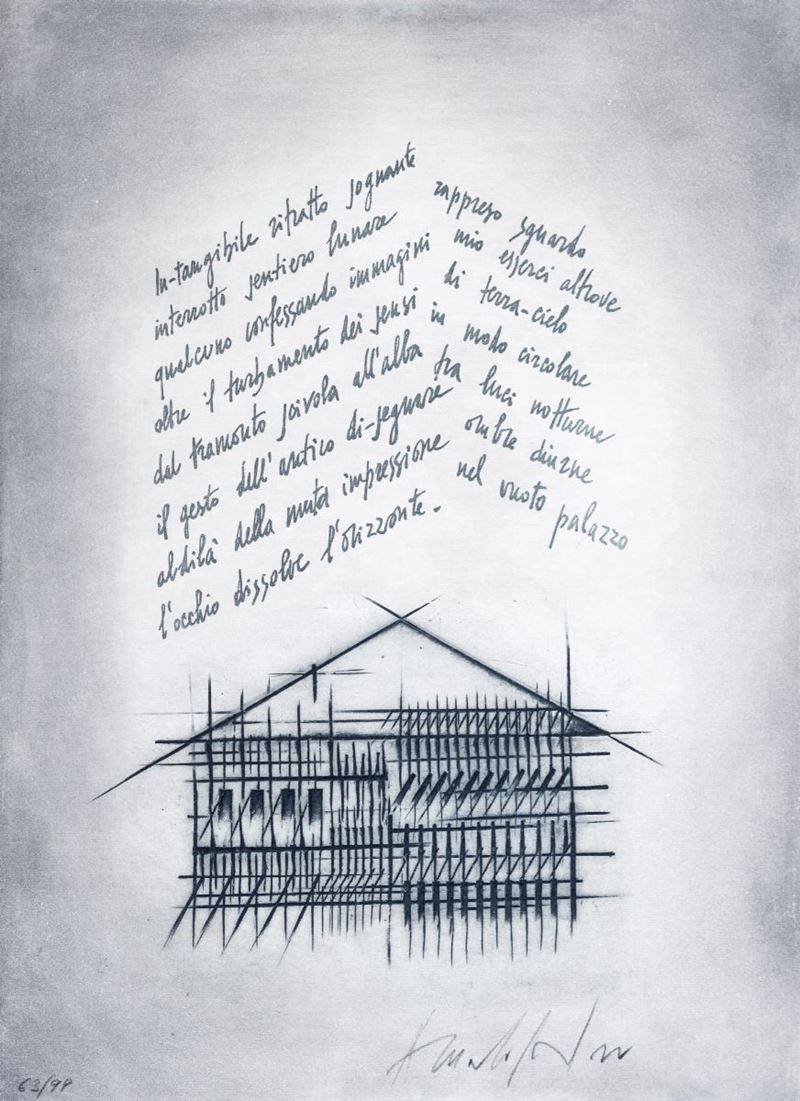 In-tangibile ritratto sognante
interrotto sentiero lunare
qualcuno confessando immagini
oltre il turbamento dei sensi
dal tramonto scivola all'alba
il gesto dell'antico di-segnare
aldilà della muta impressione
l'occhio dissolve l'orizzonte.
rappreso sguardo
mio esserci altrove
di terra-cielo
in modo circolare
tra luci notturne
ombre diurne
nel vuoto palazzo
63/99